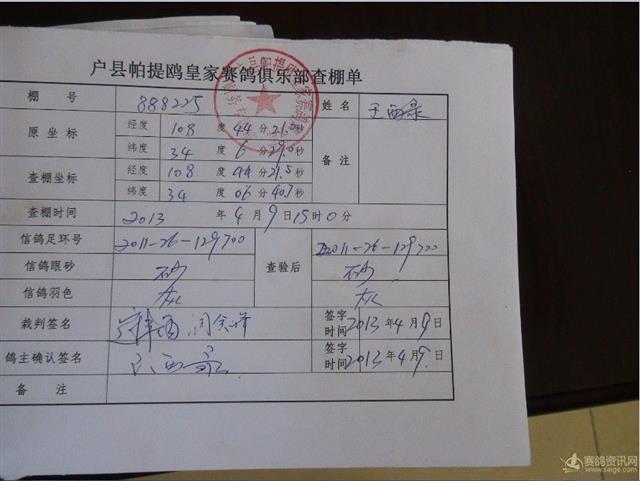 户县帕提鸥皇家赛鸽俱乐部查棚单
棚 号 888225 姓 名 王西录
原 坐 标 经度 108 度 44 分 21.0 秒 备 注
纬度 34 度 6 分 29.0 秒
查棚坐标 经度 108 度 44 分 21.5 秒
纬度 34 度 06 分 40.7 秒
查棚时间 2013 年 4 月 9 日 15 时 0 分
信鸽足环号 2011-26-129700 查验后 2011-26-129700
信鸽眼砂 砂 砂
信鸽羽色 灰 灰
裁判签名 签字时间 2013 年 4 月 9 日
鸽主确认签名 签字时间 2013 年 4 月 9 日
备 注
赛鸽资讯网
www.saige.com